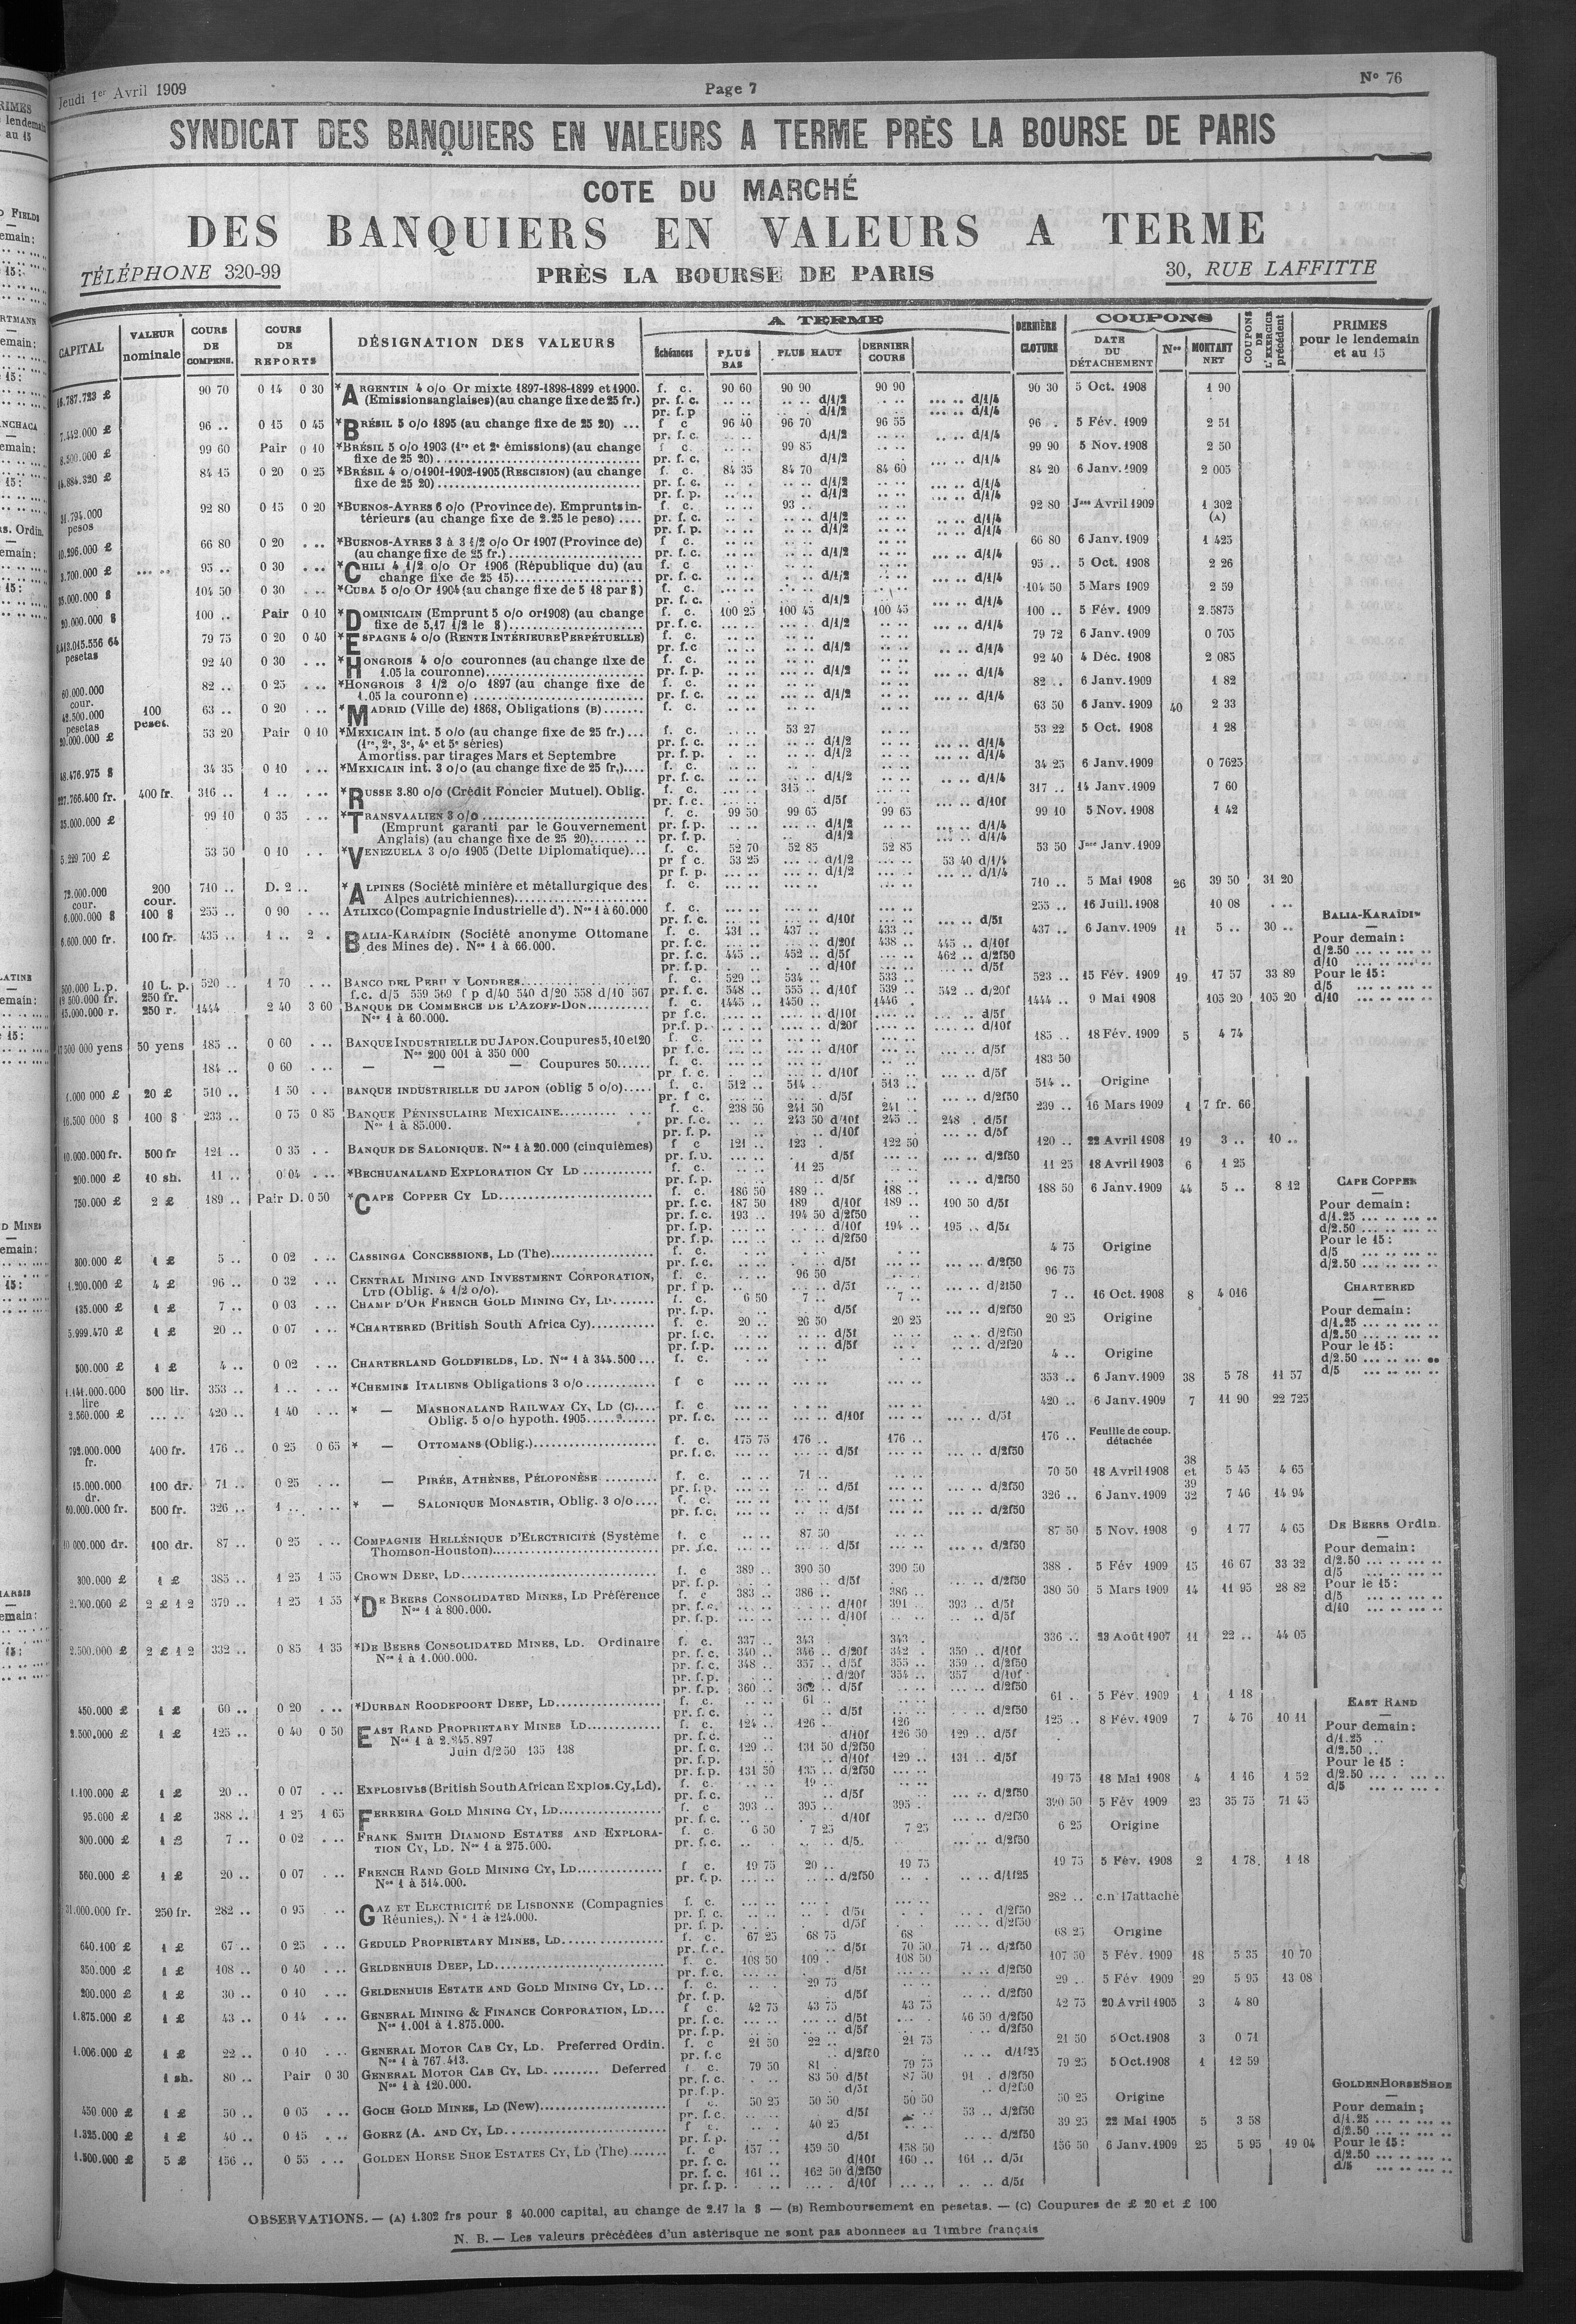 Jeudi 1er Avril 1909
Page 7
No 76
SYNDICAT DES BANQUIERS EN VALEURS A TERME PRÈS LA BOURSE DE PARIS
COTE DU MARCHÉ
DES BANQUIERS EN VALEURS A TERME
TÉLÉPHONE 320-99
PRÈS LA BOURSE DE PARIS
30, RUE LAFFITTE
CAPITAL VALEUR nominale COURS DE COMPENS. COURS DE REPORTS DÉSIGNATION DES VALEURS A TERME Échéances PLUS BAS PLUS HAUT DERNIER COURS DERNIÈRE CLOTURE COUPONS DATE DU DÉTACHEMENT Nos MONTANT NET COUPONS DE L'EXERCICE précédent PRIMES pour le lendemain et au 15
90 70 0 14 0 30 *ARGENTIN 4 o/o Or mixte 1897-1898-1899 et 1900. f. c. 90 60 90 90 90 90 90 30 5 Oct. 1908 1 90
(Emissions anglaises) (au change fixe de 25 fr.) pr. f. c. d/1/2 d/1/4
pr. f. p d/1/2 d/1/4
7.442.000 £ 96 .. 0 15 0 45 *BRÉSIL 5 o/o 1895 (au change fixe de 25 20) ... f c 96 40 96 70 96 55 96 . 5 Fév. 1909 2 51
pr. f. c. d/1/2 d/1/4
8.500.000 £ 99 60 Pair 0 10 *BRÉSIL 5 o/o 1903 (1re et 2e émissions) (au change f c. 99 85 99 90 5 Nov. 1908 2 50
fixe de 25 20) pr. f. c. d/1/2 d/1/4
84 15 0 20 0 25 *BRÉSIL 4 o/o 1901-1902-1905 (RESCISION) (au change f. c. 84 35 84 70 84 60 84 20 6 Janv. 1909 2 005
fixe de 25 20) pr. f. c. d/1/2 d/1/4
pr. f. p. d/1/2 d/1/4
31.794.000 pesos 92 80 0 15 0 20 *BUENOS-AYRES 6 o/o (Province de). Emprunts in- f. c. 93 .. 92 80 Jce Avril 1909 1 302
térieurs (au change fixe de 2.25 le peso) .... pr. f. c. d/1/2 d/1/4 (A)
pr. f. p. d/1/2 d/1/4
10.296.000 £ 66 80 0 20 *BUENOS-AYRES 3 à 3 1/2 o/o Or 1907 (Province de) f c. 66 80 6 Janv. 1909 1 425
(au change fixe de 25 fr.) pr. f. c. d/1/2 d/1/4
3.700.000 £ 95 .. 0 30 *CHILI 4 1/2 o/o Or 1906 (République du) (au f. c. 95 .. 5 Oct. 1908 2 26
change fixe de 25 15) pr. f. c. d/1/2 d/1/4
35.000.000 $ 104 50 0 30 *CUBA 5 o/o Or 1904 (au change fixe de 5 18 par $) f. c. 104 50 5 Mars 1909 2 59
pr. f. c. d/1/2 d/1/4
20.000.000 $ 100 .. Pair 0 10 *DOMINICAIN (Emprunt 5 o/o or 1908) (au change f. c. 100 25 100 45 100 45 100 .. 5 Fév. 1909 2.5875
fixe de 5,17 1/2 le $) pr. f. c. d/1/2 d/1/4
pesetas 79 75 0 20 0 40 *ESPAGNE 4 o/o (RENTE INTÉRIEURE PERPÉTUELLE) f. c. 79 72 6 Janv. 1909 0 705
pr. f. c d/1/2 d/1/4
92 40 0 30 *HONGROIS 4 o/o couronnes (au change fixe de f. c. 92 40 4 Déc. 1908 2 085
1.05 la couronne) pr. f. p. d/1/2 d/1/4
60.000.000 cour. 82 .. 0 25 *HONGROIS 3 1/2 o/o 1897 (au change fixe de f. c. 82 .. 6 Janv. 1909 1 82
1.05 la couronne) pr. f. c. d/1/2 d/1/4
42.500.000 pesetas 100 peset. 63 .. 0 20 *MADRID (Ville de) 1868, Obligations (B) f. c. 63 50 6 Janv. 1909 40 2 33
20.000.000 £ 53 20 Pair 0 10 *MEXICAIN int. 5 o/o (au change fixe de 25 fr.) f. c. 53 27 53 22 5 Oct. 1908 1 28
(1re, 2e, 3e, 4e et 5e séries) pr. f. c. d/1/2 d/1/4
Amortiss. par tirages Mars et Septembre pr. f. p. d/1/2 d/1/4
48.476.975 $ 34 35 0 10 *MEXICAIN int. 3 o/o (au change fixe de 25 fr,) f. c. 34 25 6 Janv. 1909 0 7625
pr. f. c. d/1/2 d/1/4
400 fr. 316 .. 1 .. *RUSSE 3.80 o/o (Crédit Foncier Mutuel). Oblig. f. c. 315 .. 317 .. 14 Janv. 1909 7 60
pr. f. c. d/5f d/10f
35.000.000 £ 99 10 0 35 *TRANSVAALIEN 3 o/o f. c. 99 50 99 65 99 65 99 10 5 Nov. 1908 1 42
(Emprunt garanti par le Gouvernement pr. f. p. d/1/2 d/1/4
Anglais) (au change fixe de 25 20) pr. f. p. d/1/2 d/1/4
5.229 700 £ 53 50 0 10 *VENEZUELA 3 o/o 1905 (Dette Diplomatique) f. c. 52 70 52 85 52 85 53 50 Jce Janv. 1909
pr f c. 53 25 d/1/2 53 40 d/1/4
pr f. p. d/1/2 d/1/4
72.000.000 cour. 200 cour. 710 .. D. 2 .. *ALPINES (Société minière et métallurgique des f. c. 710 .. 5 Mai 1908 26 39 50 31 20
Alpes autrichiennes)
6.000.000 $ 100 $ 255 .. 0 90 ATLIXCO (Compagnie Industrielle d'). Nos 1 à 60.000 f. c. 255 .. 16 Juill. 1908 10 08
pr. f. c. d/10f d/5f
6.600.000 fr. 100 fr. 435 .. 1 .. 2 . BALIA-KARAÏDIN (Société anonyme Ottomane f. c. 431 .. 437 .. 433 .. 437 .. 6 Janv. 1909 11 5 .. 30 ..
des Mines de). Nos 1 à 66.000. pr. f. c. d/20f 438 .. 445 .. d/10f
pr. f. c. 445 .. 452 .. d/5f 462 .. d/2f50
pr. f. p. d/10f d/5f
BALIA-KARAÏDIN
Pour demain :
d/2.50
d/10
Pour le 15 :
d/5
d/10
500.000 L.p. 10 L. p. 520 .. 1 70 BANCO DEL PERU Y LONDRES f. c. 529 .. 534 .. 533 .. 523 .. 15 Fév. 1909 19 17 57 33 89
12 500.000 fr. 250 fr. f.c. d/5 559 569 f p d/40 540 d/20 558 d/10 567 pr. f. c. 548 .. 555 .. d/10f 539 .. 542 .. d/20f
15.000.000 r. 250 r. 1444 2 40 3 60 BANQUE DE COMMERCE DE L'AZOFF-DON f. c. 1445 .. 1450 .. 1446 . 1444 .. 9 Mai 1908 105 20 105 20
Nos 1 à 60.000. pr f.c. d/10f d/5f
pr.f. p. d/20f d/10f
17 500 000 yens 50 yens 185 .. 0 60 BANQUE INDUSTRIELLE DU JAPON. Coupures 5, 10 et 20 f. c. 185 .. 18 Fév. 1909 5 4 74
Nos 200 001 à 350 000 pr f. c. d/10f d/5f
184 .. 0 60 — — — Coupures 50 f. c. 183 50
pr f. c. d/10f d/5f
20 £ 510 .. 1 50 BANQUE INDUSTRIELLE DU JAPON (oblig 5 o/o) f. c. 512 .. 514 .. 513 .. 514 .. Origine
pr. f c. d/5f d/2f50
16.500 000 $ 100 $ 233 .. 0 75 0 85 BANQUE PÉNINSULAIRE MEXICAINE f. c. 238 50 241 50 241 .. 239 .. 16 Mars 1909 1 7 fr. 66
Nos 1 à 85.000. pr. f. c. 243 50 d/10f 245 .. 248 . d/5f
pr. f. p. d/10f d/5f
10.000.000 fr. 500 fr 121 .. 0 35 BANQUE DE SALONIQUE. Nos 1 à 20.000 (cinquièmes) f c 121 .. 123 . 122 50 120 .. 22 Avril 1908 19 3 .. 10 ..
d/5f d/2f50
200.000 £ 10 sh. 11 .. 0 04 *BECHUANALAND EXPLORATION CY LD f. c. 11 25 11 25 18 Avril 1903 6 1 25
pr. f. p. d/5f d/2f50
750.000 £ 2 £ 189 .. Pair D. 0 50 *CAPE COPPER CY LD f. c. 186 50 189 .. 188 .. 188 50 6 Janv. 1909 44 5 .. 8 12
pr. f. c. 187 50 189 d/10f 189 .. 190 50 d/5f
pr. f. c. 193 .. 194 50 d/2f50
pr. f. p. d/10f 194 .. 195 .. d/5f
pr. f. p. d/2f50
CAPE COPPER
Pour demain :
d/1.25
d/2.50
Pour le 15 :
d/5
d/2.50
300.000 £ 1 £ 5 .. 0 02 CASSINGA CONCESSIONS, LD (The) f. c. 4 75 Origine
pr. f. c. d/5f d/2f50
1.200.000 £ 4 £ 96 .. 0 32 CENTRAL MINING AND INVESTMENT CORPORATION, f. c. 96 50 96 75
LTD (Oblig. 4 1/2 o/o). pr. f p. d/5f d/2f50
135.000 £ 1 £ 7 .. 0 03 CHAMP D'OR FRENCH GOLD MINING CY, LD f. c. 6 50 7 .. 7 .. 7 .. 16 Oct. 1908 8 4 016
pr. f. p. d/5f d/2f50
5.999.470 £ 1 £ 20 .. 0 07 *CHARTERED (British South Africa Cy) f. c. 20 .. 20 50 20 25 20 25 Origine
pr. f. c. d/5f d/2f50
pr. f. p. d/5f d/2f20
CHARTERED
Pour demain :
d/1.25
d/2.50
Pour le 15 :
d/2.50
d/5
500.000 £ 1 £ 4 .. 0 02 CHARTERLAND GOLDFIELDS, LD. Nos 1 à 344.500 f. c. 4 .. Origine
1.141.000.000 lire 500 lir. 353 .. 1 .. *CHEMINS ITALIENS Obligations 3 o/o f c 353 .. 6 Janv. 1909 38 5 78 11 57
2.560.000 £ 420 .. 1 40 * — MASHONALAND RAILWAY CY, LD (C) f. c 420 .. 6 Janv. 1909 7 11 90 22 725
Oblig. 5 o/o hypoth. 1905 pr. f. c. d/10f d/5f
792.000.000 fr. 400 fr. 176 .. 0 25 0 65 * — OTTOMANS (Oblig.) f. c. 175 75 176 .. 176 .. 176 .. Feuille de coup. détachée
pr. f. c. d/5f d/2f50
15.000.000 dr. 100 dr. 71 .. 0 25 — PIRÉE, ATHÈNES, PÉLOPONÈSE f. c. 71 .. 70 50 18 Avril 1908 38 et 39 5 45 4 65
pr. f. p. d/5f d/2f50
60.000.000 fr. 500 fr. 326 .. 1 .. * — SALONIQUE MONASTIR, Oblig. 3 o/o f. c. 326 .. 6 Janv. 1909 32 7 46 14 94
pr. f. c. d/5f d/2f50
10 000.000 dr. 100 dr. 87 .. 0 25 COMPAGNIE HELLÉNIQUE D'ELECTRICITÉ (Système f. c 87 50 87 50 5 Nov. 1908 9 1 77 4 65
Thomson-Houston) pr. f.c. d/5f d/2f50
300.000 £ 1 £ 385 .. 1 25 1 55 CROWN DEEP, LD f. c 389 .. 390 50 390 50 388 . 5 Fév 1909 15 16 67 33 32
pr. f. p. d/5f d/2f50
2 £ 1 2 379 .. 1 25 1 55 *DE BEERS CONSOLIDATED MINES, LD Préférence f. c 383 .. 386 .. 386 .. 380 50 5 Mars 1909 14 11 95 28 82
Nos 1 à 800.000. pr. f. c. d/10f 391 .. 393 .. d/5f
pr. f. p. d/10f d/5f
DE BEERS Ordin.
Pour demain :
d/2.50
d/5
Pour le 15 :
d/5
d/10
2.500.000 £ 2 £ 1 2 332 .. 0 85 1 35 *DE BEERS CONSOLIDATED MINES, LD. Ordinaire f. c. 337 .. 343 . 343 . 336 .. 23 Août 1907 11 22 .. 44 05
Nos 1 à 1.000.000. pr. f. c. 340 .. 346 .. d/20f 342 . 350 .. d/10f
pr. f. c. 348 .. 357 .. d/5f 355 .. 359 .. d/2f50
pr. f. p. d/20f 354 .. 357 d/10f
pr. f. p. 360 .. 362 .. d/5f d/2f50
450.000 £ 1 £ 60 .. 0 20 *DURBAN ROODEPOORT DEEP, LD f. c. 61 .. 61 .. 5 Fév. 1909 1 1 18
pr. f. c. d/5f d/2f50
2.500.000 £ 1 £ 125 .. 0 40 0 50 EAST RAND PROPRIETARY MINES LD f. c. 124 .. 126 .. 126 125 .. 8 Fév. 1909 7 4 76 10 11
pr. f. c. d/10f 126 50 129 .. d/5f
Juin d/2 50 135 138 pr. f. c. 129 .. 131 50 d/2f50
pr. f. p. d/10f 129 .. 131 .. d/5f
pr. f. p. 131 50 135 .. d/2f50
EAST RAND
Pour demain :
d/1.25
d/2.50
Pour le 15 :
d/2.50
d/5
1.100.000 £ 1 £ 20 .. 0 07 EXPLOSIVES (British South African Explos. Cy, Ld). f. c. 19 .. 19 75 18 Mai 1908 4 1 16 1 52
pr. f. c. d/5f d/2f50
95.000 £ 1 £ 388 .. 1 25 1 65 FERREIRA GOLD MINING CY, LD f. c 393 .. 395 .. 395 . 390 50 5 Fév 1909 23 35 75 71 45
pr. f. c. d/10f d/2f50
300.000 £ 1 £ 7 .. 0 02 FRANK SMITH DIAMOND ESTATES AND EXPLORA- f. c. 6 50 7 25 7 25 6 25 Origine
TION CY, LD. Nos 1 à 275.000. pr. f. c. d/5. d/2f50
560.000 £ 1 £ 20 .. 0 07 FRENCH RAND GOLD MINING CY, LD f c. 19 75 20 .. 19 75 19 75 5 Fév. 1908 2 1 78. 1 18
Nos 1 à 514.000. pr. f. p. d/2f50 d/1f25
31.000.000 fr. 250 fr. 282 .. 0 95 GAZ ET ELECTRICITÉ DE LISBONNE (Compagnies f. c. 282 .. c.n 17 attaché
Réunies,). Nos 1 à 124.000. pr. f. c. d/5f d/2f50
pr. f. p. d/5f d/2f50
640.100 £ 1 £ 67 .. 0 25 GEDULD PROPRIETARY MINES, LD f. c. 67 25 68 75 68 68 25 Origine
pr. f. c. d/5f 70 50 71 .. d/2f50
350.000 £ 1 £ 108 .. 0 40 GELDENHUIS DEEP, LD f. c. 108 50 109 . 108 50 107 50 5 Fév. 1909 18 5 35 10 70
pr. f. c. d/5f d/2f50
200.000 £ 1 £ 30 .. 0 10 GELDENHUIS ESTATE AND GOLD MINING CY, LD f. c. 29 75 29 .. 5 Fév 1909 29 5 95 13 08
pr. f. p. d/5f d/2f50
1.875.000 £ 1 £ 43 .. 0 14 GENERAL MINING & FINANCE CORPORATION, LD f c. 42 75 43 75 43 75 42 75 20 Avril 1905 3 4 80
Nos 1.001 à 1.875.000. pr. f. c. d/5f 46 50 d/2f50
pr. f. p. d/5f d/2f50
1.006.000 £ 1 £ 22 .. 0 10 GENERAL MOTOR CAB CY, LD. Preferred Ordin. f. c 21 50 22 .. 21 75 21 50 5 Oct. 1908 3 0 71
Nos 1 à 767.413. pr. f. c d/2f50 d/1f25
1 sh. 80 .. Pair 0 30 GENERAL MOTOR CAB CY, LD. Deferred f c. 79 50 81 . 79 75 79 25 5 Oct. 1908 1 12 59
Nos 1 à 120.000. pr. f. c. 83 50 d/5f 87 50 91 . d/2f50
pr. f. p. d/5f d/2f50
450.000 £ 1 £ 50 .. 0 05 GOCH GOLD MINES, LD (New) f c. 50 25 50 50 50 50 50 25 Origine
pr. f. c. d/5f 53 .. d/2f50
1.325.000 £ 1 £ 40 .. 0 15 GOERZ (A. AND CY, LD f c. 40 25 39 25 22 Mai 1905 5 3 58
pr. f. p. d/5f d/2f50
1.500.000 £ 5 £ 156 .. 0 55 GOLDEN HORSE SHOE ESTATES CY, LD (The) f. c 157 .. 159 50 158 50 156 50 6 Janv. 1909 25 5 95 19 04
pr. f. c. d/10f 160 .. 161 .. d/5f
pr. f. c. 161 .. 162 50 d/2f50
pr. f. p. d/10f d/5f
GOLDEN HORSE SHOE
Pour demain ;
d/1.25
d/2.50
Pour le 15 :
d/2.50
d/5
OBSERVATIONS. — (A) 1.302 frs pour $ 40.000 capital, au change de 2.17 la $ — (B) Remboursement en pesetas. — (C) Coupures de £ 20 et £ 100
N. B. — Les valeurs précédées d'un astérisque ne sont pas abonnées au Timbre français